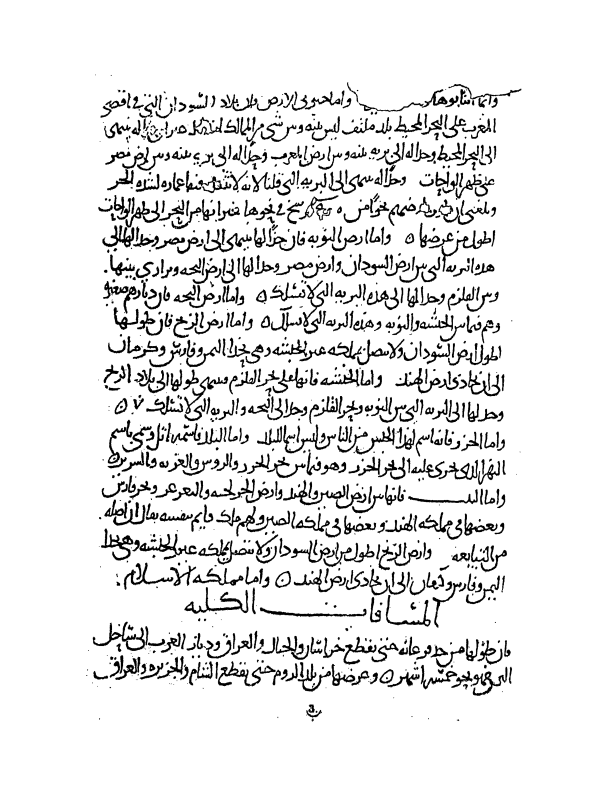 واما حنوبى الارض من بلاد السودان التى فى اقصى
المغرب على البحر المحيط بلد ملتف ليس بينه وبين شى من الممالك
الى البحر المحيط وحد له الى بريه بينه وبين ارض المغرب وحد له الى بريه بينه وبين ارض مصر
على ظهر الواحات وحد له ينتهى الى البريه التى قلنا لانه لا عماره لشده الحر
وبلغنى ان ارضهم نحو من فرسخ فى نحوها غير انها من البحر الى ظهر الواحات
اطول من عرضها ٥ واما ارض النوبه فان حد لها ينتهى الى ارض مصر وحد لها الى
هذه البريه التى بين ارض السودان وارض مصر وحد لها الى ارض البجه وبرارى بينها
وبين القلزم وحد لها الى هذه البريه التى لا تسلك ٥ واما ارض البجه فان ديارهم صغيره
وهم فيما بين الحبشه والنوبه وهذه البريه التى لا تسلك ٥ واما ارض الزنج فان طولها
اطول ارض السودان ولا يتصل بمملكه غير الحبشه وهى بحذا اليمن وفارس وكرمان
الى ان تحاذى ارض الهند واما الحبشه فانها على بحر القلزم وينتهى طولها الى بلاد الزنج
وحد لها الى البريه التى بين النوبه وبحر القلزم وحد لها الى البجه والبريه التى لا تسلك ٥
واما الخزر فانه اسم لهذا الجنس من الناس وليس اسم للبلد واما البلد فاسمه اتل وسمى باسم
النهر الذى يجرى عليه الى بحر الخزر وهو فيما بين بحر الخزر والروس والغزيه والسرير ٥
واما التبت فانها بين ارض الصين والهند وارض الخرلخيه والتغزغز وبحر فارس
وبعضها فى مملكه الهند وبعضها فى مملكه الصين ولهم ملك قايم بنفسه يقال ان اصله
من التبابعه وارض الزنج اطول من ارض السودان ولا تتصل بمملكه غير الحبشه وهى بحذا
اليمن وفارس وكرمان الى ان تحاذى ارض الهند ٥ واما مملكه الاسلام
المسافات الكليه
فان طولها من حد فرغانه حتى يقطع خراسان والجبال والعراق وديار العرب الى ساحل
اليمن فهو نحو خمسه اشهر ٥ وعرضها من بلد الروم حتى يقطع الشام والجزيره والعراق